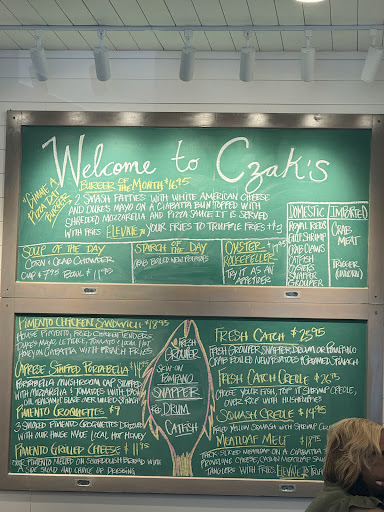 Welcome to Czak's
"Gimme A
Pizza Dat
Burger"
Burger of the Month $16.95
2 Smash Patties with White American Cheese
and Duke's Mayo on a Ciabatta Bun topped with
Shredded Mozzarella and Pizza Sauce it is served
with fries Elevate your fries to truffle fries +$3
Soup of the Day
Corn & Crab Chowder
Cup $7.95 Bowl $11.95
Starch of the Day
Crab Boiled New Potatoes
Oyster
Rockefeller
Try it as an
appetizer
Domestic
Royal Reds
Gulf Shrimp
Crab Claws
Catfish
Oysters
Snapper
Grouper
Imported
Crab
Meat
Pimento Chicken Sandwich $18.95
House Pimento, Fried Chicken Tenders
Duke's Mayo, Lettuce, Tomato & Local Hot
Honey on Ciabatta with French Fries
Caprese Stuffed Portabella $18
Portabella Mushroom Cap Stuffed
with Mozzarella & Tomatoes with
Pimento Croquettes $9
3 Smoked Pimento Croquettes Drizzled
with our House Made Local Hot Honey
Pimento Grilled Cheese $11.95
Our Pimento Melted on Sourdough Bread with
a Side Salad and Choice of Dressing
Fresh
Grouper
Skin-on
Pompano
Snapper
Red Drum
Catfish
Fresh Catch $25.95
Fresh Grouper, Snapper, Drum or Pompano
Crab Boiled New Potatoes & Creamed Spinach
Fresh Catch Creole $26.95
Choose your fish, top it Shrimp Creole,
over rice with Hushpuppies
Squash Creole $19.95
Fried Yellow Squash with Shrimp
Meatloaf Melt $18.95
Thick Sliced Meatloaf on a Ciabatta
Provolone Cheese,
with fries. Elevate to